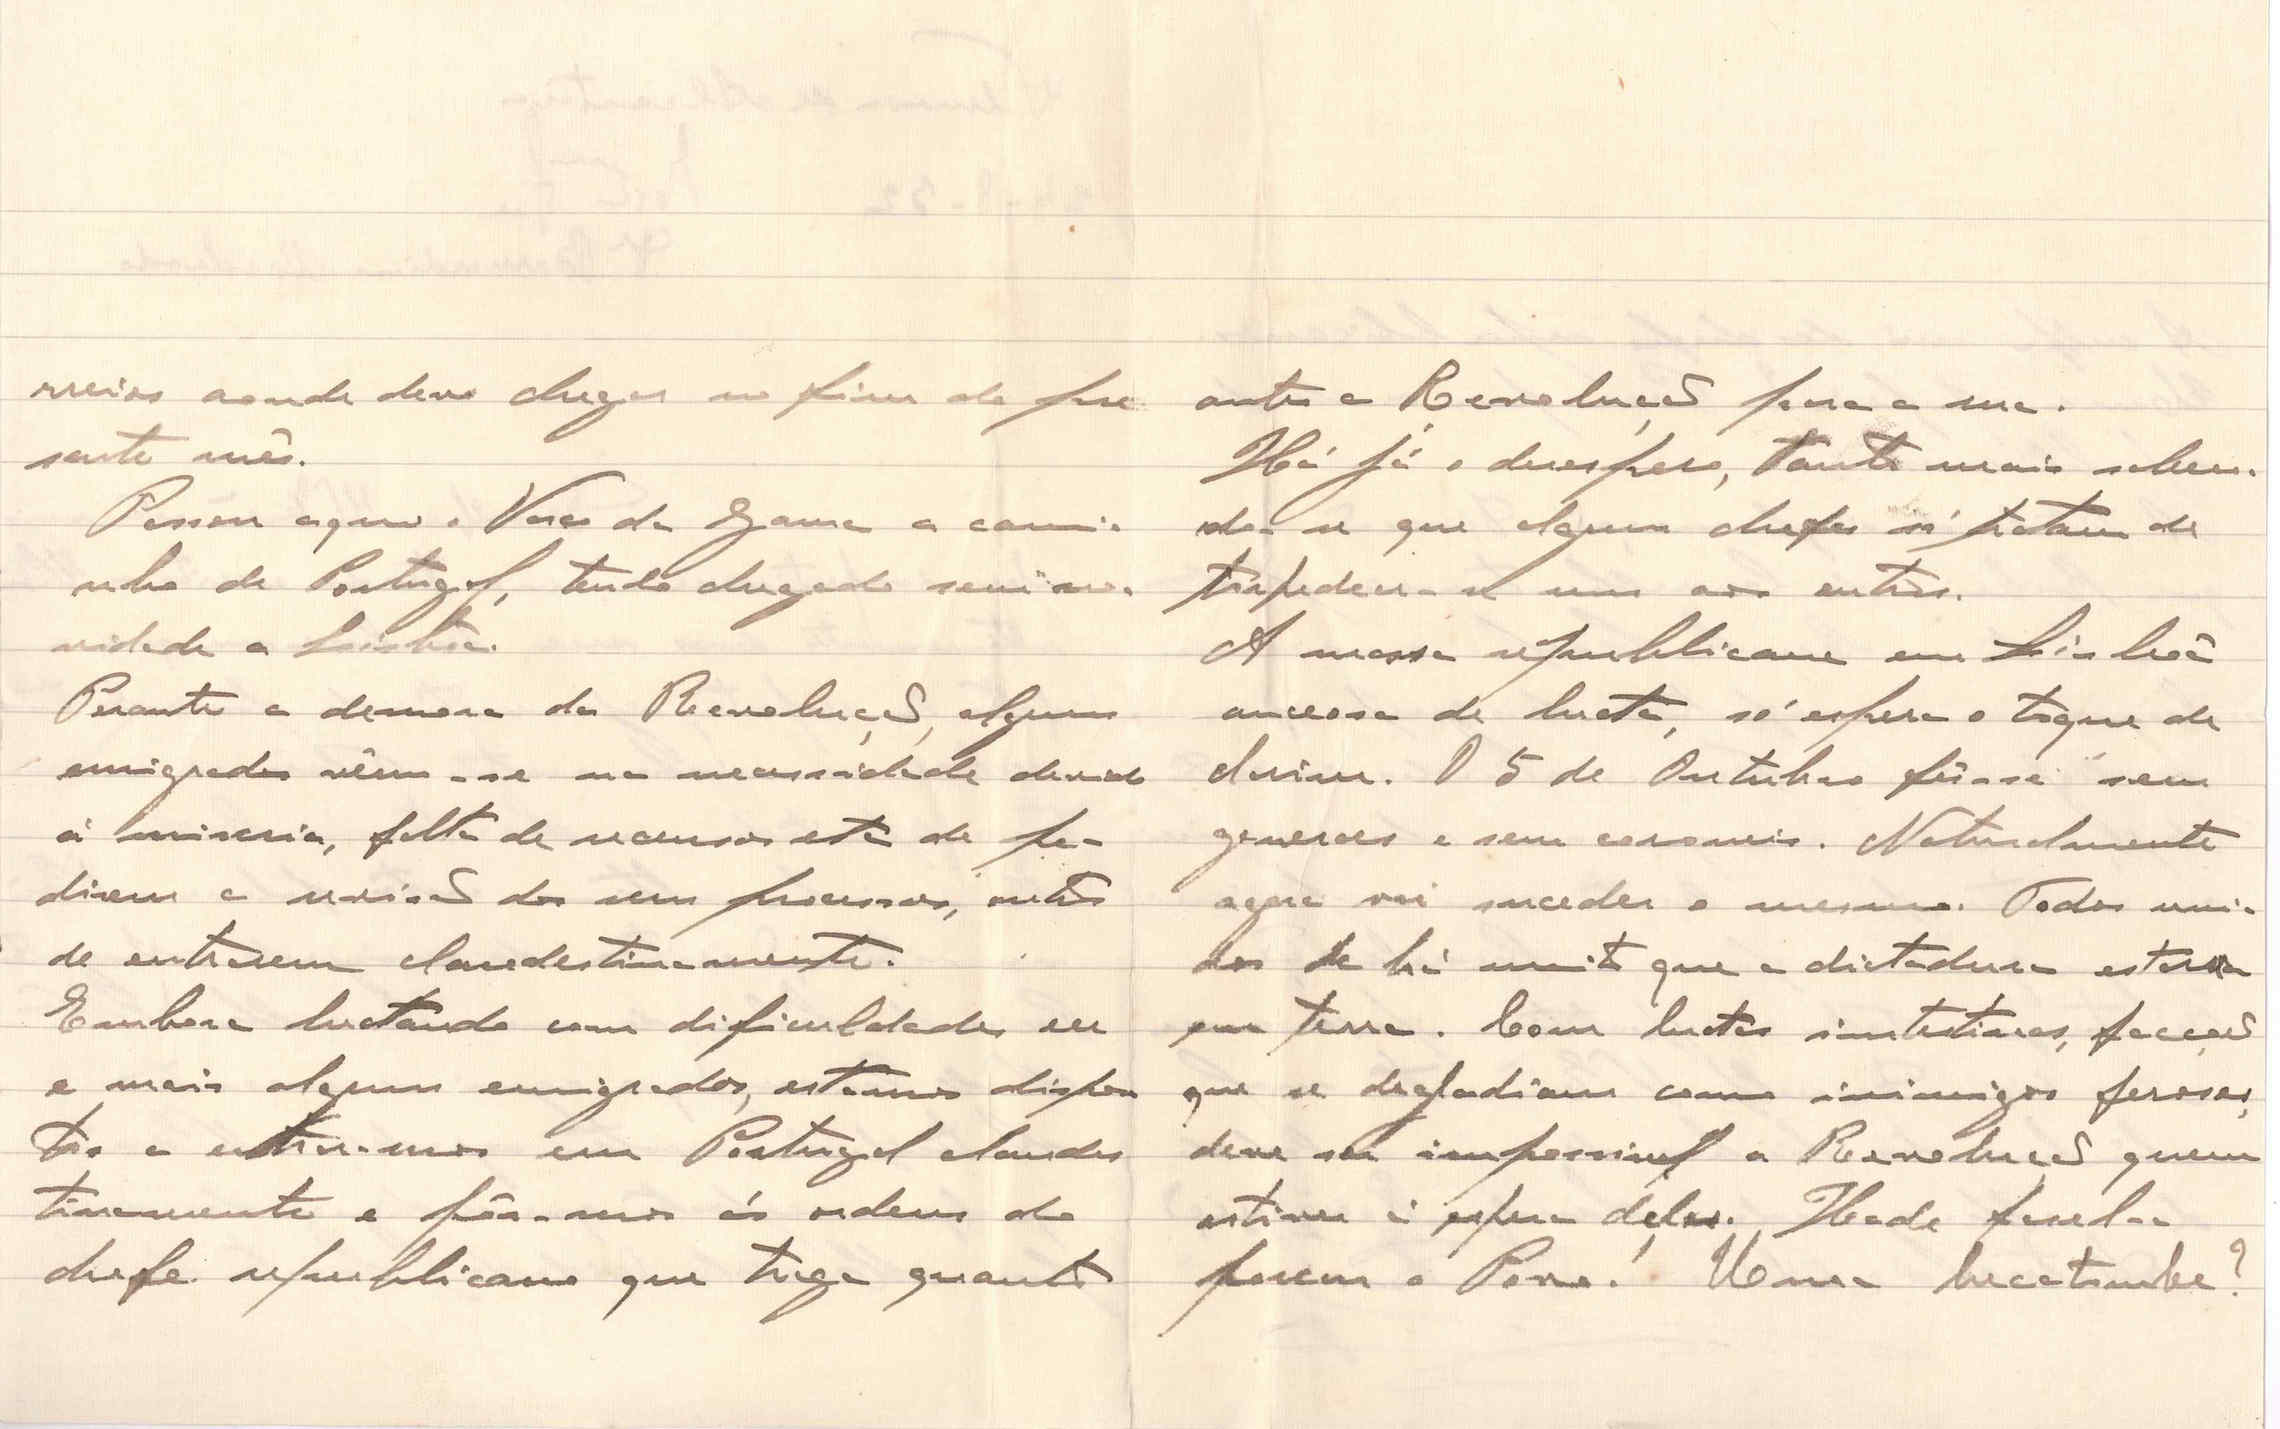 rreios aonde devo chegar no fim do pre
sente mês.
Passou aqui o Vasco da Gama a cami-
nho de Portugal, tendo chegado sem no-
vidade a Lisbôa.
Perante a demora da Revolução, alguns
emigrados vêm-se na necessidade devido
á miseria, falta de recursos etc. de pe-
direm a revisão dos seus processos, outros
de entrarem clandestinamente.
Embora luctando com dificuldades eu
e mais alguns emigrados, estamos dispos
tos a entrar-mos em Portugal clandes
tinamente e pôr-mos ás ordens do
chefe republicano que traga quanto
antes a Revolução para a rua.
Há já o desespero, tanto mais saben-
do-se que alguns chefes só tratam de
torpedear-se uns aos outros.
A massa republicana em Lisbôa
anceosa de lucta, só espera o toque de
clarim. O 5 de Outubro fês-se sem
generaes e sem coroneis. Naturalmente
agora vai suceder o mesmo. Todos uni-
dos há muito que a dictadura estava
em terra. Com luctas intestinas, facções
que se degladiam como inimigos ferozes,
deve ser impossivel a Revolução quem
estiver á espera deles. Hade fasel-a
porem o Povo! Uma hecatombe?